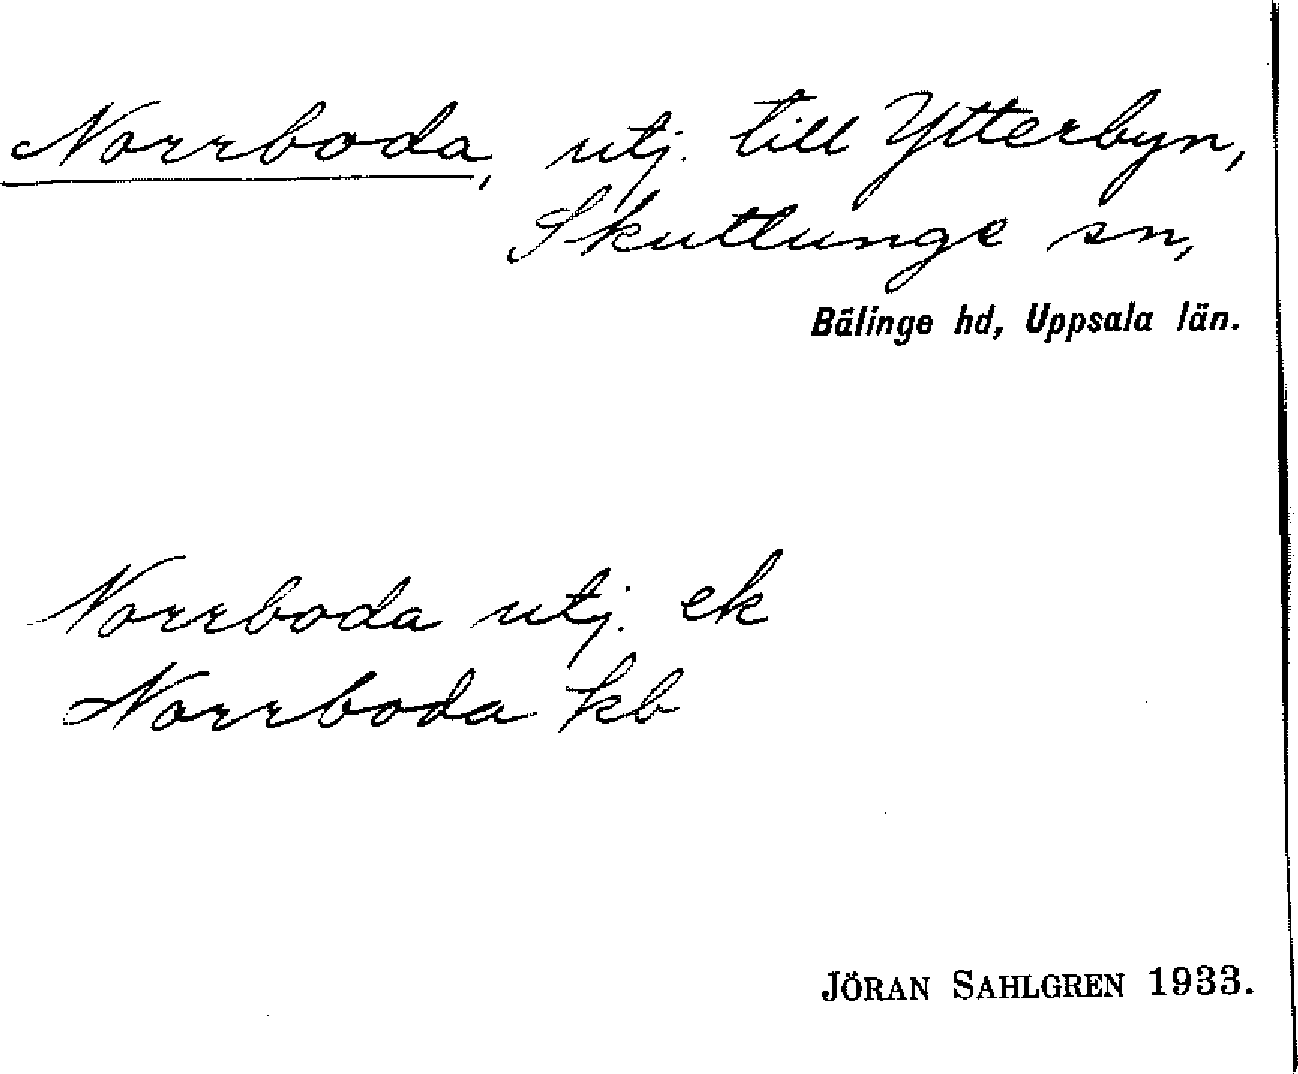 Norrboda, utj. till Ytterbyn,
Skuttunge sn,
Bälinge hd, Uppsala län.
Norrboda utj. ek
Norrboda kb
JÖRAN SAHLGREN 1933.